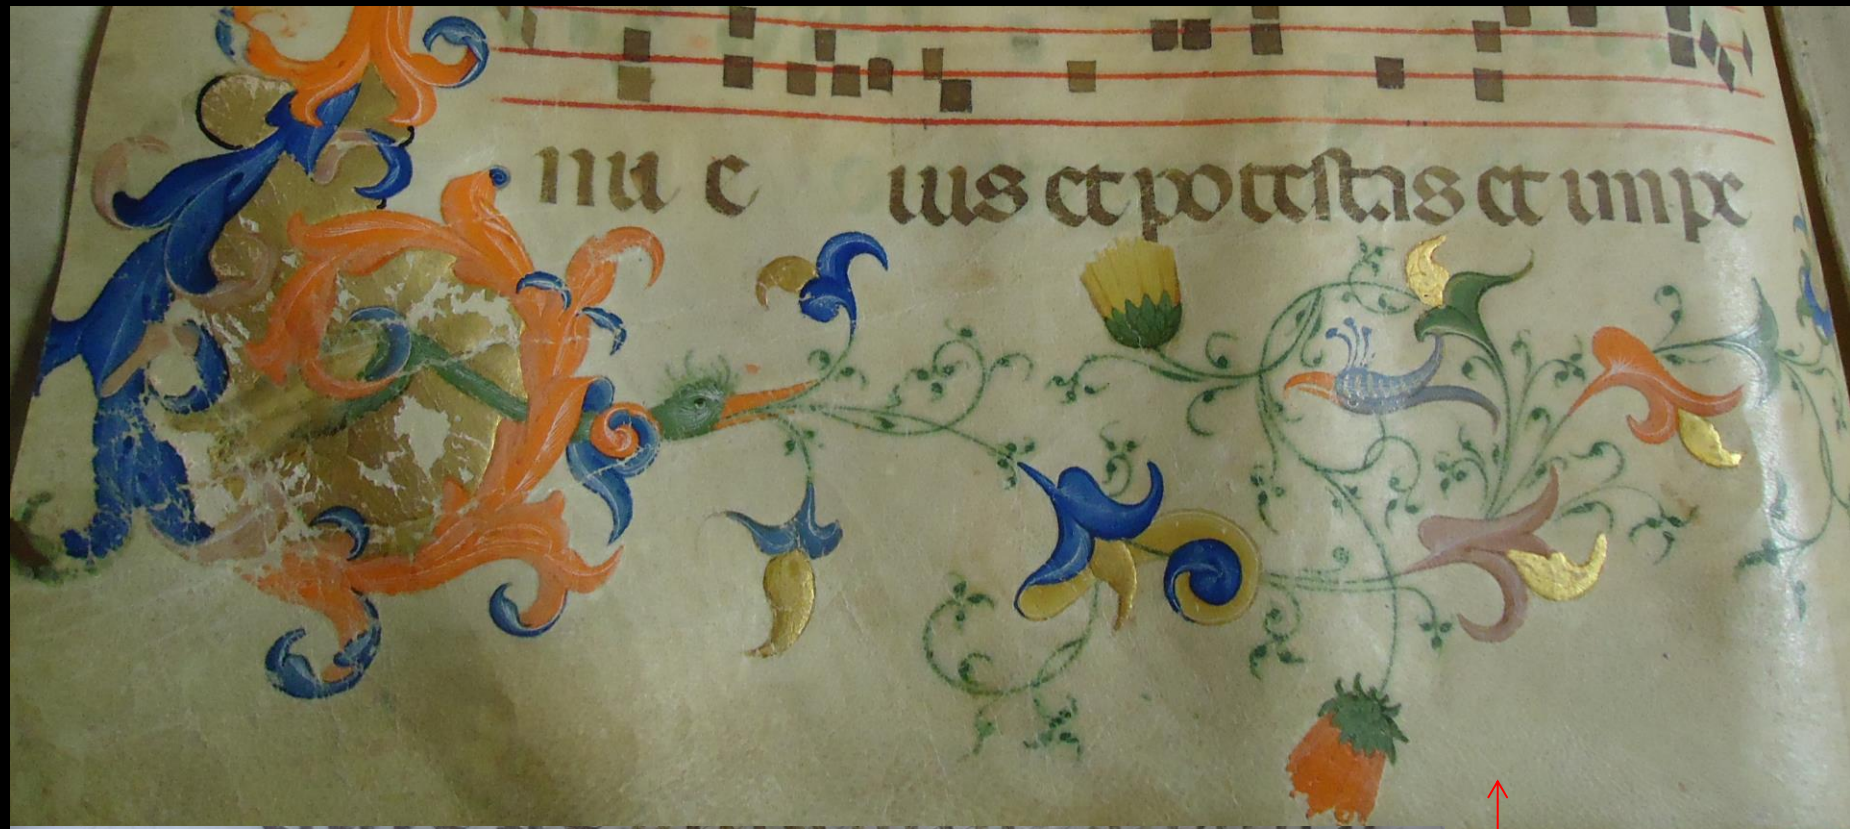 nu e ius et potestas et impe